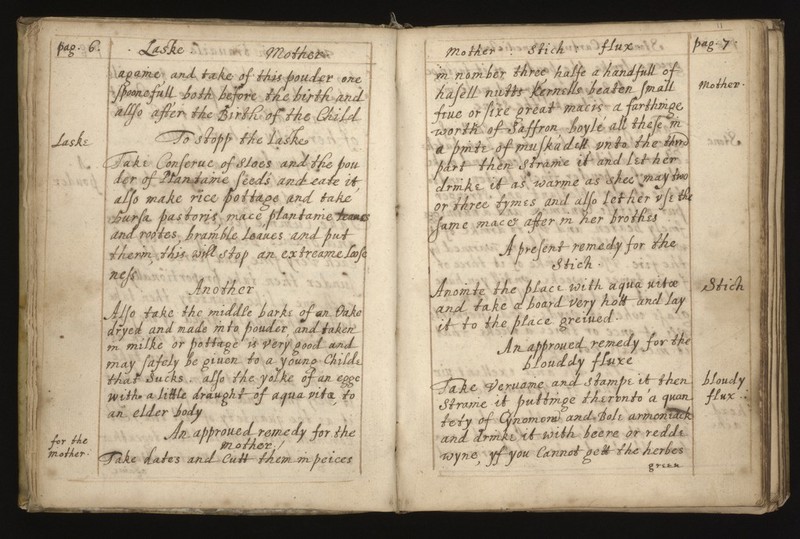 pag. 6. Laske Mother
againe, and take of this pouder one
spoonefull both before the birth and
allso after the Birth of the Child
To stopp the Laske
Laske
Take Conserue of Sloes and the pou
der of Plantaine seeds and eate it,
also make rice pottage and take
bursa pastoris, mace plantaine leaues
and rootes bramble Leaues and put
therin, this will stop an extreame loose
ness
Another
Allso take the middle barke of an Oake
dryed and made into pouder, and taken
in milke or pottage is very good and
may safely be giuen to a young Childe
that Sucks. also the yolke of an egge
with a little draught of aqua vitæ, to
an elder body
An approued remedy for the
mother
for the
mother
Take dates and Cutt them in peices
Mother Stich flux pag. 7
11
in nomber three halfe a handfull of
hasell nutts kernells beaten small
Mother
fiue or sixe great maces a farthinge
worth of Saffron boyle all these in
a pinte of muskadell vnto the third
part then straine it and let her
drinke it as warme as shee may two
or three tymes and also let her vse the
same maces after in her brothes
A present remedy for the
Stich
Stich
Anointe the place with aqua vitæ
and take a board very hott and lay
it to the place greiued
An approued remedy for the
blouddy fluxe
bloudy
flux
Take Veruame and stampe it then
straine it puttinge thervnto a quan
tety of Cynomom and Bole armoniack
and drinke it with beere or redde
wyne, yf you Cannot gett the herbes
green